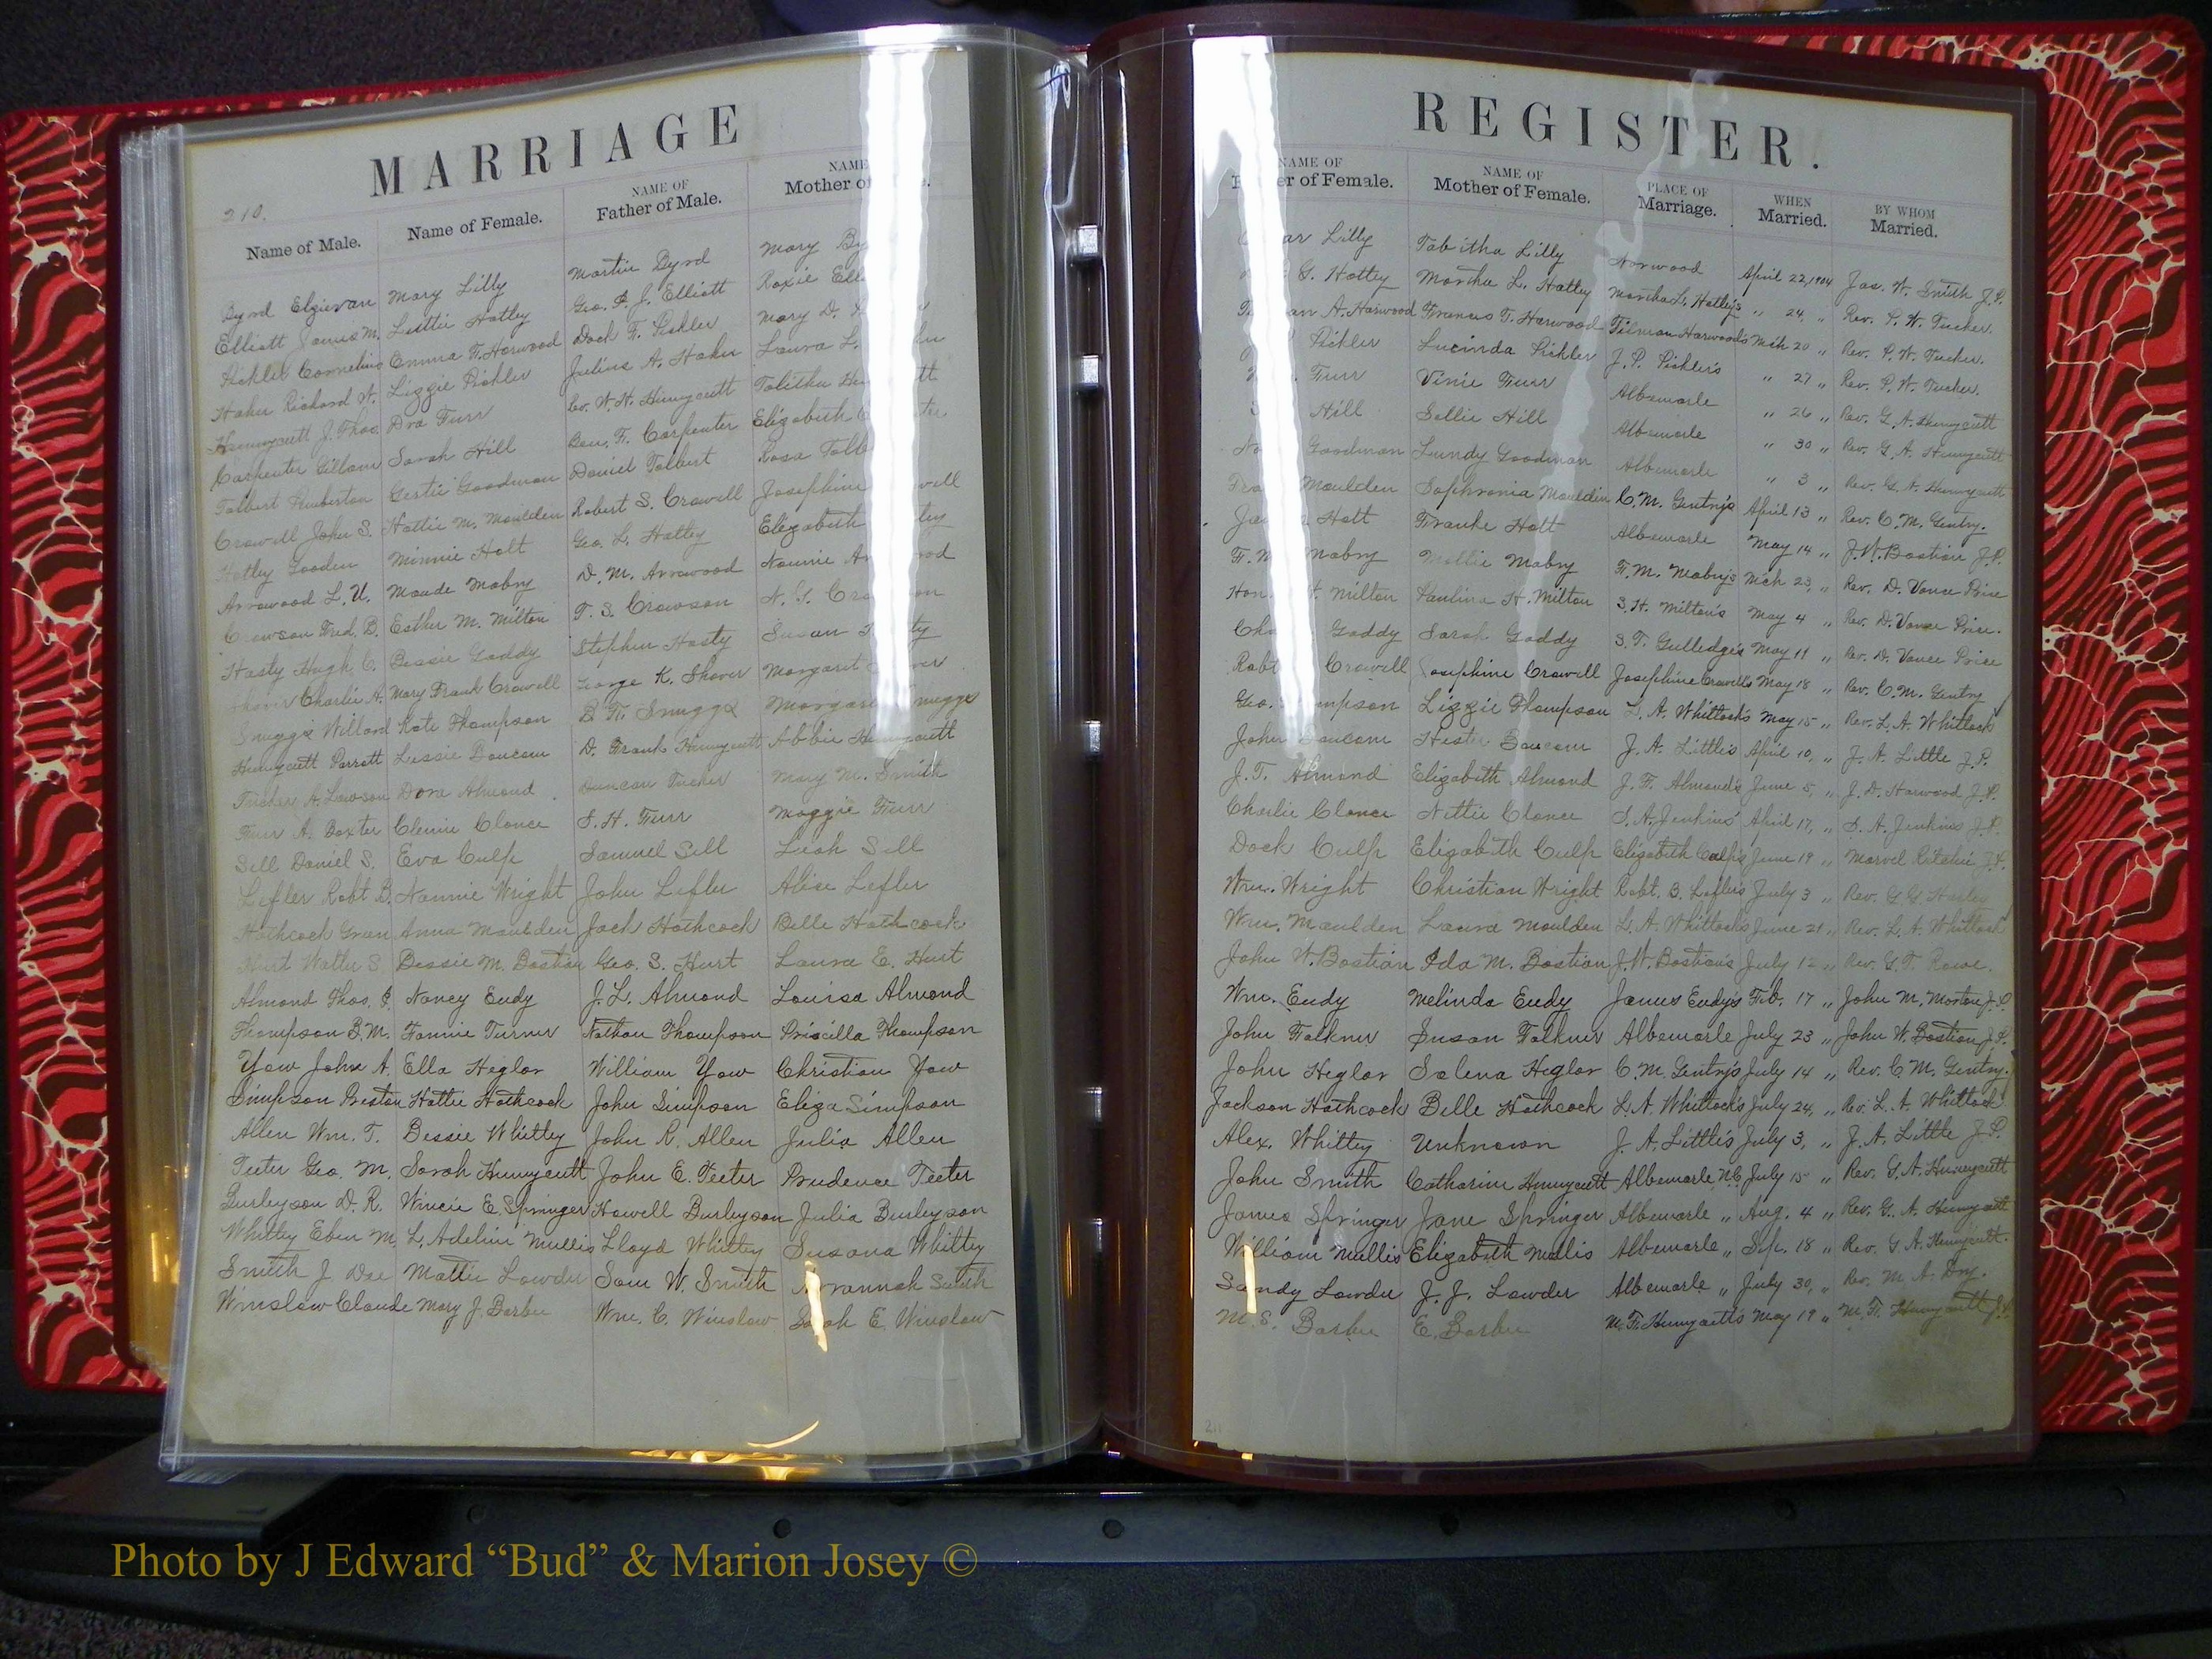 MARRIAGE
210.
Name of Male. Name of Female. NAME OF Father of Male. NAME Mother
Byrd Elgievan Mary Lilly Martin Byrd Mary
Elliott James M. Luttie Hatley Geo. P. J. Elliott Roxie
Pickler Cornelius Emma T. Harwood Dock F. Pickler Mary D.
Hahn Richard W. Lizzie Pickler Julius A. Hahn Laura L.
Hunnycutt J. Thos. Dra Furr Geo. W. H. Hunnycutt Talitha
Carpenter Gilliam Sarah Hill Ben. F. Carpenter Elizabeth
Talbert Pemberton Gertie Goodman Daniel Talbert Rosa
Crowell John S. Hattie M. Moulden Robert S. Crowell Josephine
Hatley Gooden Minnie Holt Geo. L. Hatley Elizabeth
Arrowood L. U. Maude Mabry D. M. Arrowood Nannie
Crowson Fred. B. Esther M. Milton T. S. Crowson
Hasty Hugh C. Bessie Gaddy Stephen Hasty Susan
Shaver Charlie A. Mary Frank Crowell George K. Shaver Margaret
Snuggs Willard Kate Thompson B. F. Snuggs
Hunnycutt Parrott Lessie Baucom D. Frank Hunnycutt Abbie Hunnycutt
Tucker A. Lawson Dora Almond Duncan Tucker Mary M. Smith
Furr A. Baxter Clemie Clonce S. H. Furr Maggie Furr
Sell Daniel S. Eva Culp Samuel Sell Leah Sell
Lefler Robt B. Nannie Wright John Lefler Alice Lefler
Hathcock Green Anna Maulden Jack Hathcock Belle Hathcock
Hurt Walter S. Bessie M. Bostian Geo. S. Hurt Laura E. Hurt
Almond Thos. J. Nancy Eudy J. L. Almond Louisa Almond
Thompson B. M. Fannie Turner Nathan Thompson Priscilla Thompson
Yow John A. Ella Heglar William Yow Christian Yow
Simpson Preston Hattie Hathcock John Simpson Eliza Simpson
Allen Wm. T. Bessie Whitley John R. Allen Julia Allen
Teeter Geo. M. Sarah Hunnycutt John E. Teeter Prudence Teeter
Burleyson D. R. Wincie E. Springer Howell Burleyson Julia Burleyson
Whitley Eben M. L. Adeline Mullis Lloyd Whitley Susana Whitley
Smith J. Dae Mattie Lowder Sam W. Smith Smith
Winslow Claude Mary J. Barbee Wm. C. Winslow Sarah E. Winslow
REGISTER.
NAME OF of Female. NAME OF Mother of Female. PLACE OF Marriage. WHEN Married. BY WHOM Married.
Lilly Tabitha Lilly Norwood April 22, 1904 Jas. W. Smith J.P.
G. Hatley Martha L. Hatley Martha L. Hatley's " 24, " Rev. P. W. Tucker.
A. Harwood Frances T. Harwood Tilman Harwood's Mch 20 " Rev. P. W. Tucker.
Pickler Lucinda Pickler J. P. Pickler's " 27 " Rev. P. W. Tucker.
Furr Vinie Furr Albemarle " 26 " Rev. G. A. Hunnycutt
Hill Sallie Hill Albemarle " 30 " Rev. G. A. Hunnycutt
Goodman Lundy Goodman Albemarle " 3 " Rev. G. A. Hunnycutt
Moulden Sophronia Mouldin C. M. Gentry's April 13 " Rev. C. M. Gentry.
Holt Franke Holt Albemarle May 14 " J. W. Bostian J.P.
Mabry Mollie Mabry F. M. Mabry's Mch 23, " Rev. D. Vance Price
Milton Paulina H. Milton S. H. Milton's May 4 " Rev. D. Vance Price.
Gaddy Sarah Gaddy S. T. Gulledge's May 11 " Rev. D. Vance Price
Robt Crowell Josephine Crowell Josephine Crowell's May 18 " Rev. C. M. Gentry
Geo. Lizzie Thompson L. A. Whitlock's May 15 " Rev. L. A. Whitlock
John Baucom Hester Baucom J. A. Little's April 10, " J. A. Little J.P.
J. T. Almond Elizabeth Almond J. F. Almond's June 5, " J. D. Harwood J.P.
Charlie Clonce Nettie Clonce S. A. Jenkins' April 17, " S. A. Jenkins J.P.
Dock Culp Elizabeth Culp Elizabeth Culp's June 19 " Marvel Ritchie J.P.
Wm. Wright Christian Wright Robt. B. Lefler's July 3 " Rev. G. G. Harley
Wm. Maulden Laura Moulden L. A. Whitlock's June 21 " Rev. L. A. Whitlock
John W. Bostian Ida M. Bostian J. W. Bostian's July 12 " Rev. G. T. Rowe.
Wm. Eudy Melinda Eudy James Eudy's Feb. 17 " John M. Morton J.P.
John Falkner Susan Falkner Albemarle July 23 " John W. Bostian J.P.
John Heglar Salena Heglar C. M. Gentry's July 14 " Rev. C. M. Gentry.
Jackson Hathcock Belle Hathcock L. A. Whitlock's July 24, " Rev. L. A. Whitlock
Alex. Whitley Unknown J. A. Little's July 3, " J. A. Little J.P.
John Smith Catharine Hunnycutt Albemarle N.C. July 15 " Rev. G. A. Hunneycutt
James Springer Jane Springer Albemarle " Aug. 4 " Rev. G. A. Hunnycutt
William Mullis Elizabeth Mullis Albemarle " Sep. 18 " Rev. G. A. Hunnycutt.
Sandy Lowder J. J. Lowder Albemarle " July 30, " Rev. M. A. Dry.
M. S. Barbee E. Barbee M. F. Hunnycutt's May 19 " M. F. Hunnycutt J.P.
211
Photo by J Edward “Bud” & Marion Josey ©